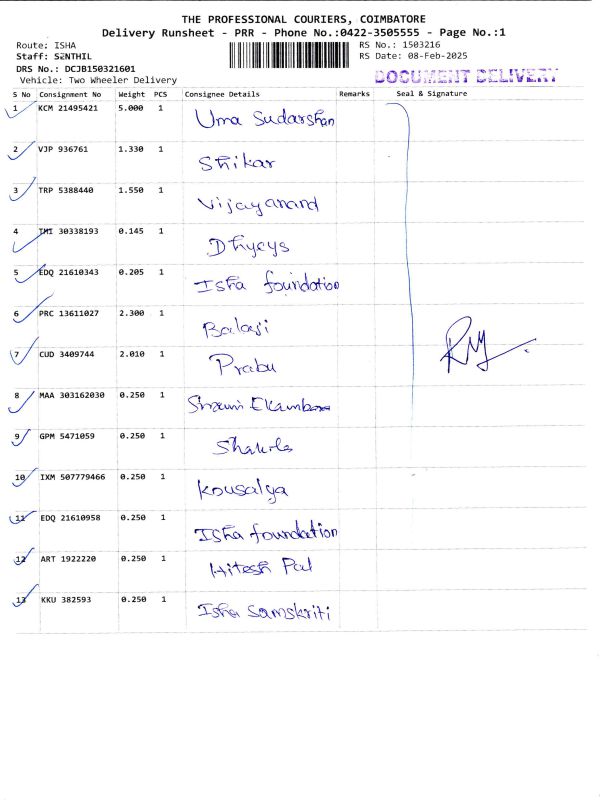 THE PROFESSIONAL COURIERS, COIMBATORE
Delivery Runsheet - PRR - Phone No.:0422-3505555 - Page No.:1
Route: ISHA
RS No.: 1503216
Staff: SENTHIL
RS Date: 08-Feb-2025
DRS No.: DCJB150321601
DOCUMENT DELIVERY
Vehicle: Two Wheeler Delivery
S No Consignment No Weight PCS Consignee Details Remarks Seal & Signature
1 KCM 21495421 5.000 1 Uma Sudarshan
2 VJP 936761 1.330 1 Shikar
3 TRP 5388440 1.550 1 Vijayanand
4 TMI 30338193 0.145 1 Dhyeys
5 EDQ 21610343 0.205 1 Isha foundation
6 PRC 13611027 2.300 1 Balaji
7 CUD 3409744 2.010 1 Prabu
8 MAA 303162030 0.250 1
9 GPM 5471059 0.250 1 Shakila
10 IXM 507779466 0.250 1 Kousalya
11 EDQ 21610958 0.250 1 Isha foundation
12 ART 1922220 0.250 1 Hitesh Pal
13 KKU 382593 0.250 1 Isha Samskriti